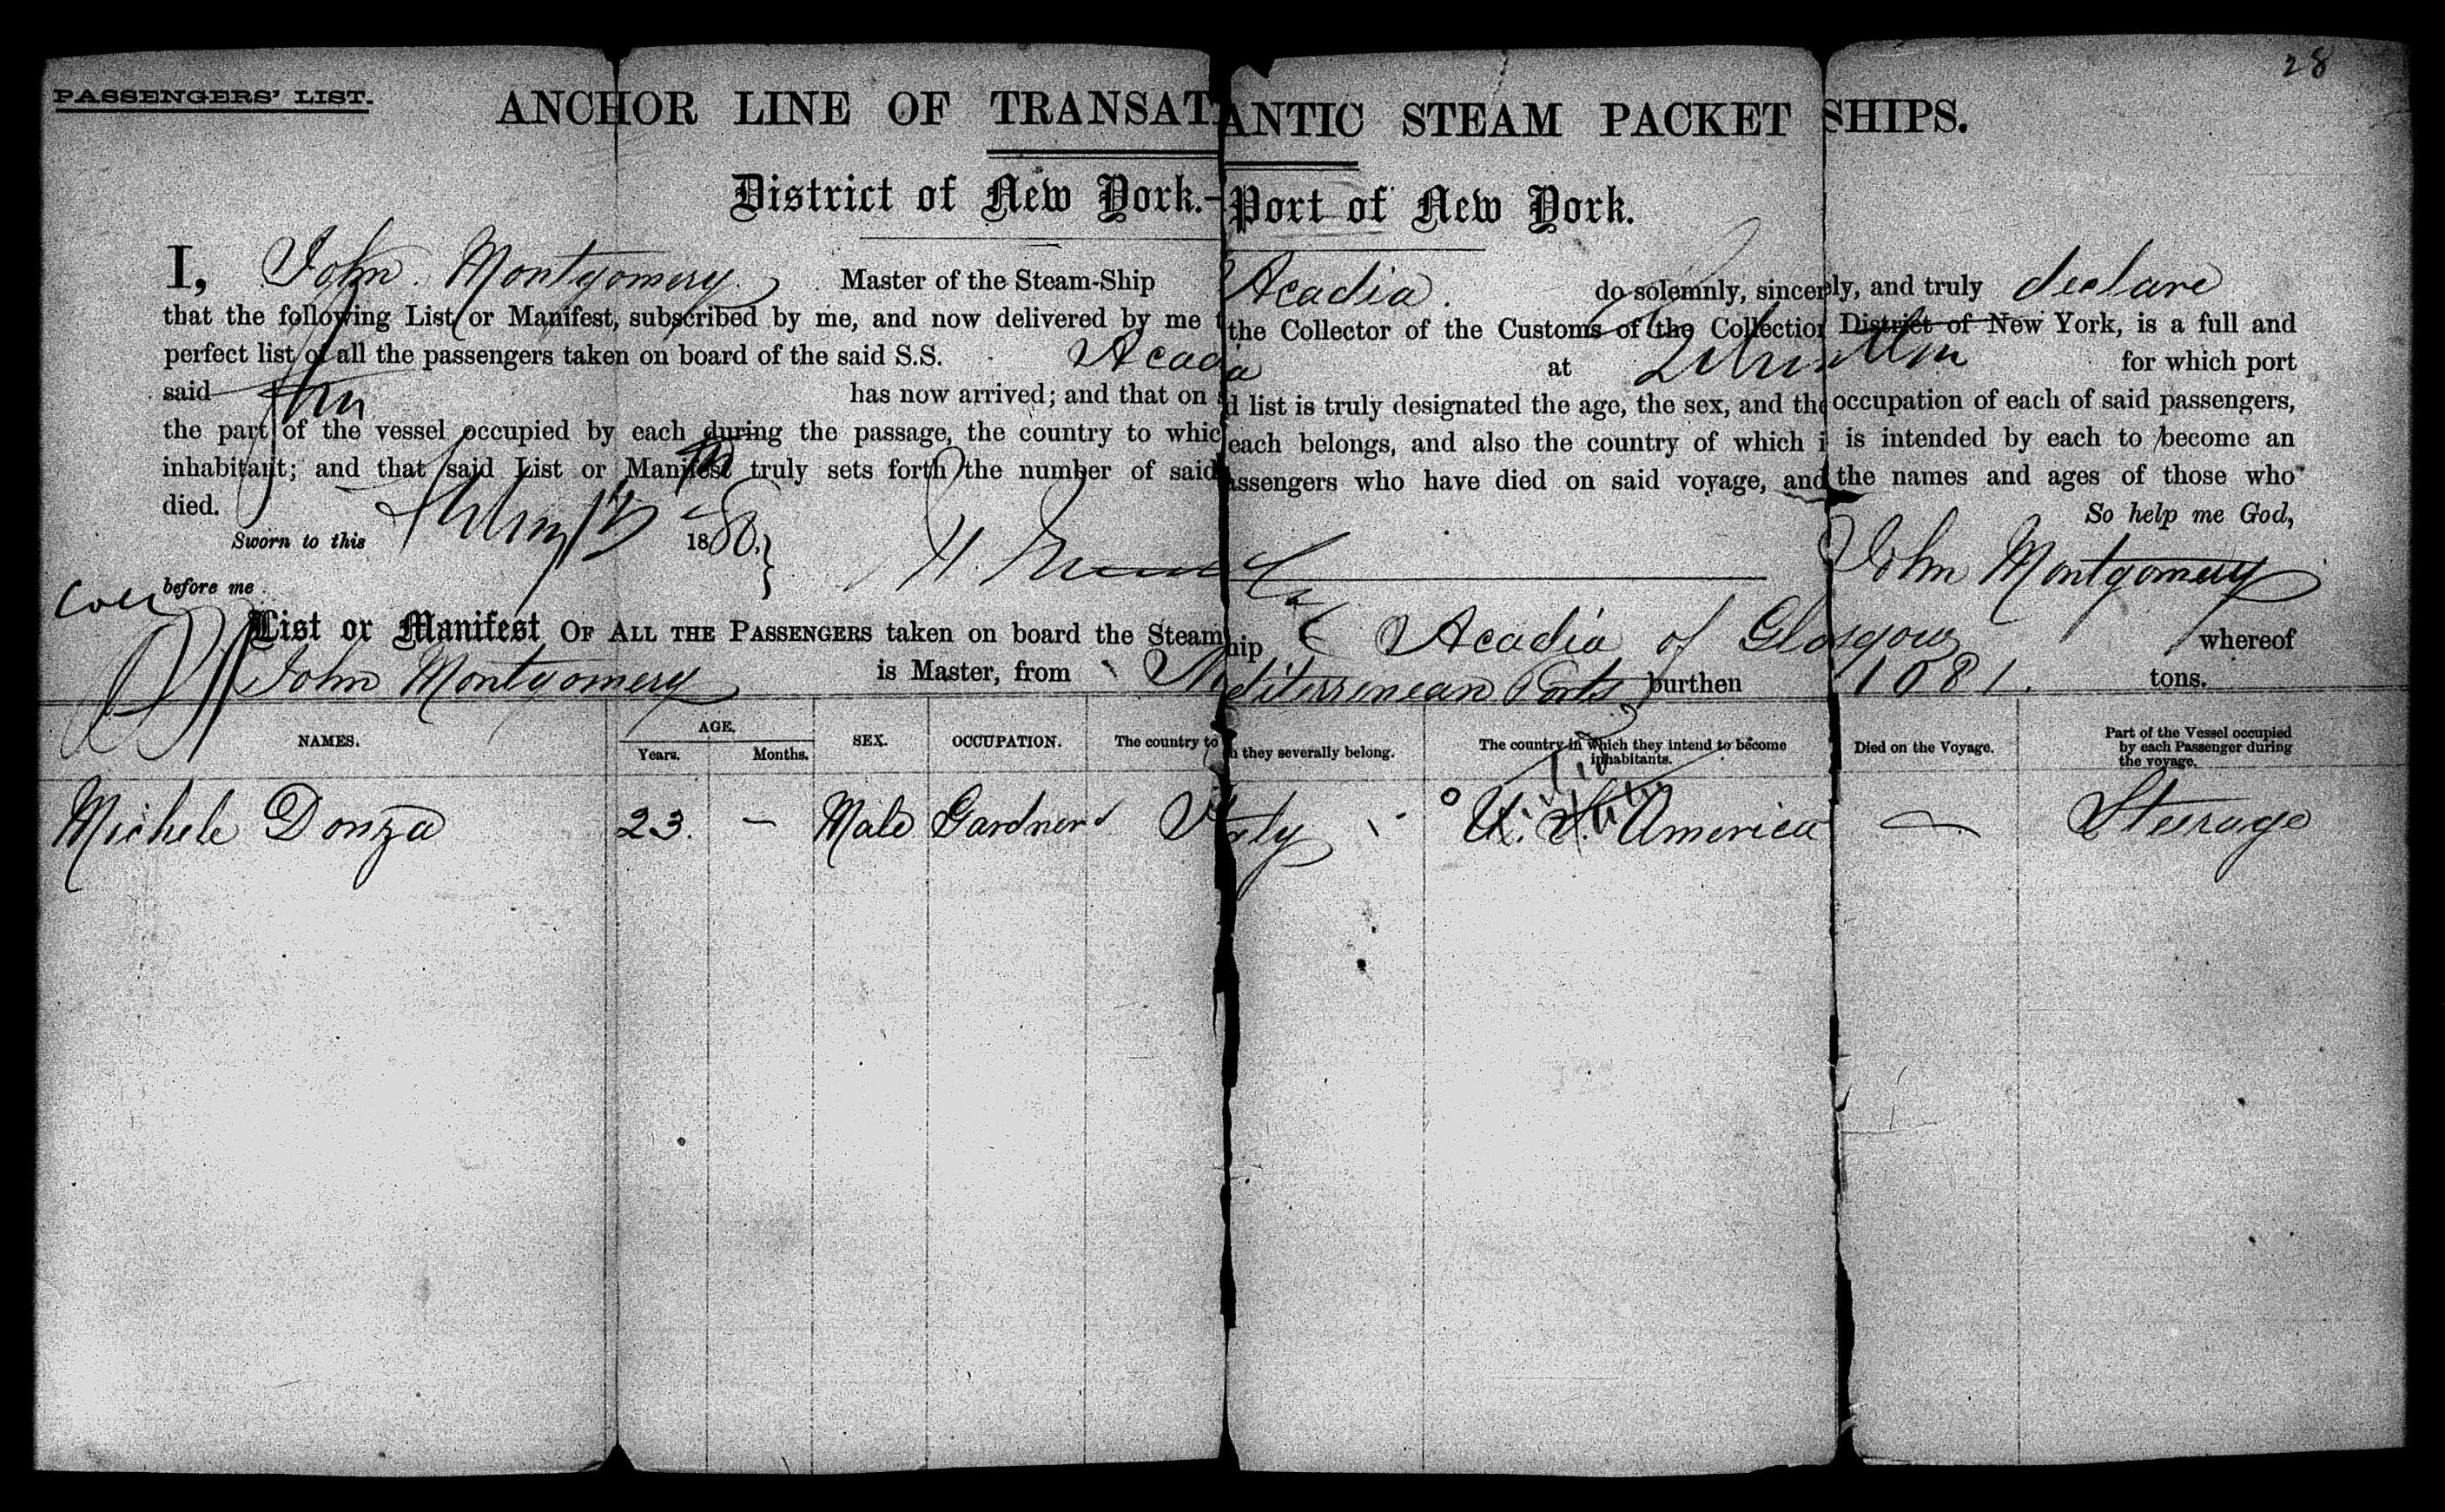 28
PASSENGERS' LIST.
ANCHOR LINE OF TRANSATLANTIC STEAM PACKET SHIPS.
District of New York.-Port of New York.
I, John Montgomery Master of the Steam-Ship Acadia. do solemnly, sincerely, and truly declare
that the following List or Manifest, subscribed by me, and now delivered by me to the Collector of the Customs of the Collection District of New York, is a full and
perfect list of all the passengers taken on board of the said S.S. Acadia at for which port
said has now arrived; and that on said list is truly designated the age, the sex, and the occupation of each of said passengers,
the part of the vessel occupied by each during the passage, the country to which each belongs, and also the country of which it is intended by each to become an
inhabitant; and that said List or Manifest truly sets forth the number of said passengers who have died on said voyage, and the names and ages of those who
died. So help me God,
Sworn to this 1880. John Montgomery
before me
List or Manifest OF ALL THE PASSENGERS taken on board the Steamship Acadia of Glasgow whereof
John Montgomery is Master, from Mediterrenean Ports burthen 1081. tons.
NAMES. AGE. Years. Months. SEX. OCCUPATION. The country to which they severally belong. The country in which they intend to become inhabitants. Died on the Voyage. Part of the Vessel occupied by each Passenger during the voyage.
Michele Donza 23. — Male Gardner Italy U. S. America — Steerage